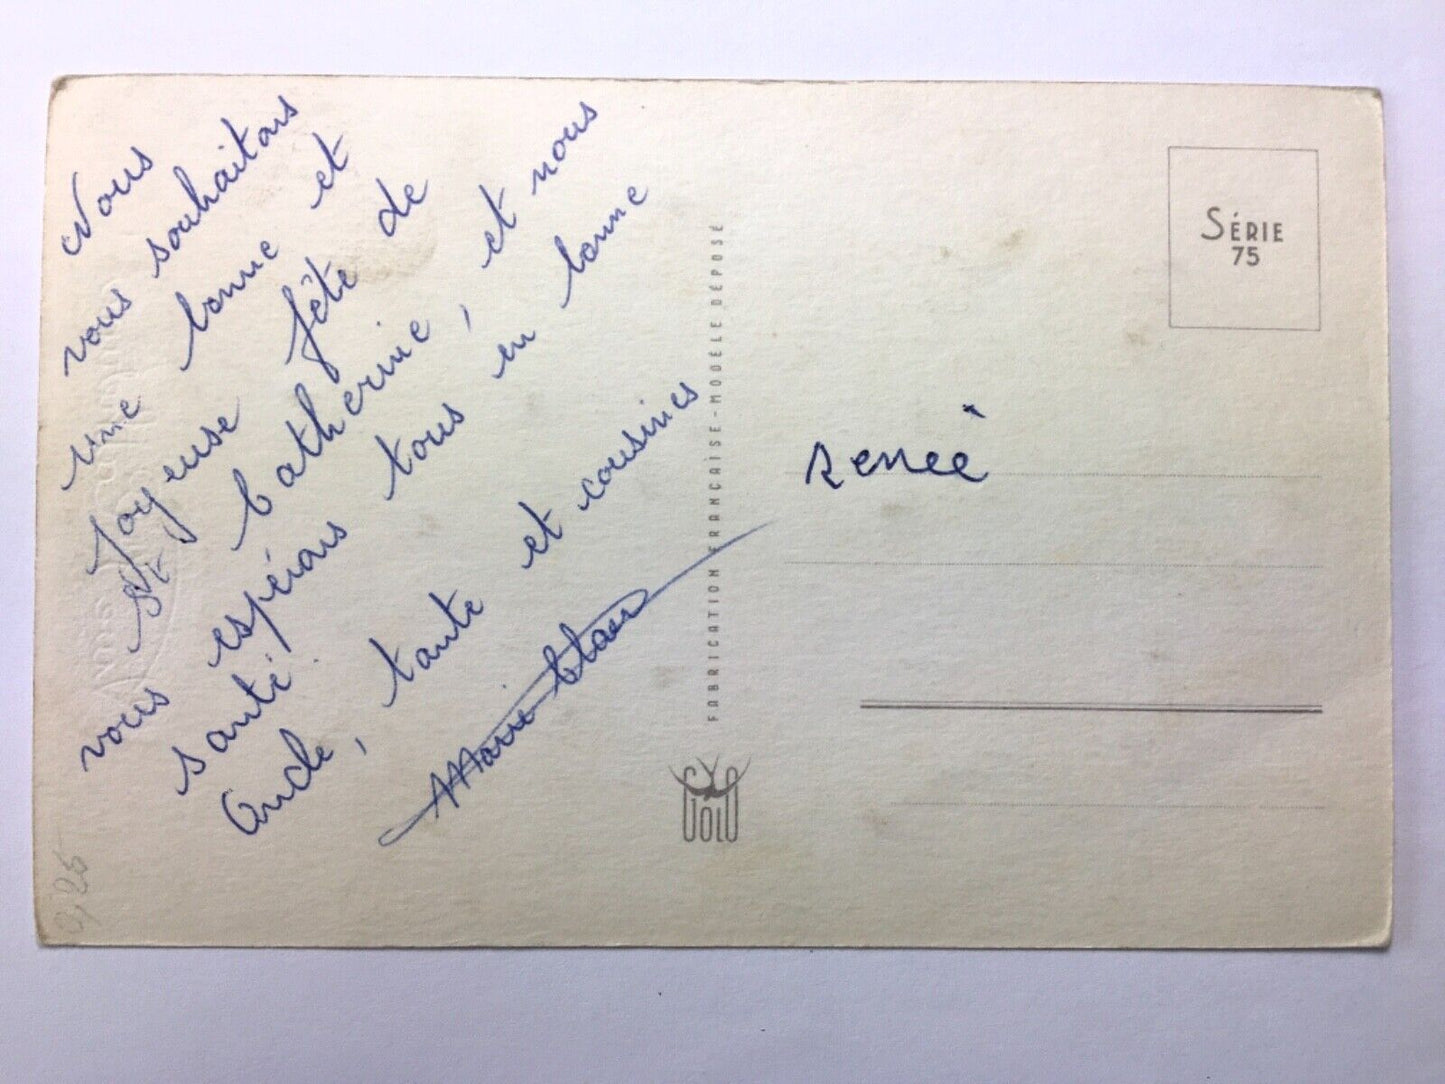 Nous
vous souhaitons
une bonne et
Joyeuse fête de
St Catherine, et nous
vous espérons tous en bonne
santé.
Oncle, tante et cousines
Marie Claire
Renée
SÉRIE
75
FABRICATION FRANÇAISE - MODÈLE DÉPOSÉ
0,25